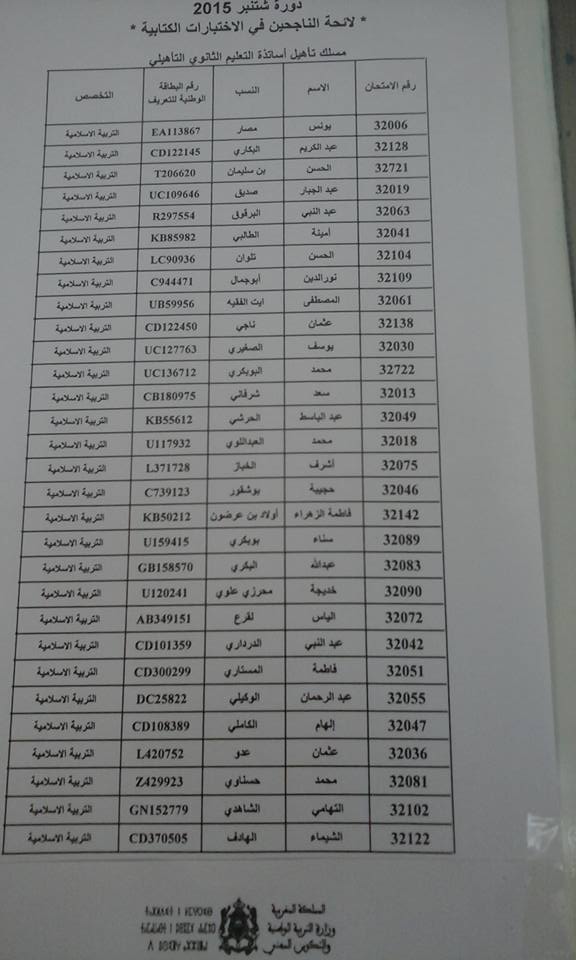 دورة شتنبر 2015
* لائحة الناجحين في الاختبارات الكتابية *
مسلك تأهيل أساتذة التعليم الثانوي التأهيلي
رقم الامتحان الاسم النسب رقم البطاقة الوطنية للتعريف التخصص
32006 يونس مصار EA113867 التربية الاسلامية
32128 عبد الكريم البكاري CD122145 التربية الاسلامية
32721 الحسن بن سليمان T206620 التربية الاسلامية
32019 عبد الجبار صديق UC109646 التربية الاسلامية
32063 عبد النبي البرقوق R297554 التربية الاسلامية
32041 أمينة الطالبي KB85982 التربية الاسلامية
32104 الحسن تلوان LC90936 التربية الاسلامية
32109 نورالدين أبوجمال C944471 التربية الاسلامية
32061 المصطفى ايت الفقيه UB59956 التربية الاسلامية
32138 عثمان ناجي CD122450 التربية الاسلامية
32030 يوسف الصغيري UC127763 التربية الاسلامية
32722 محمد البوبكري UC136712 التربية الاسلامية
32013 سعد شرفاني CB180975 التربية الاسلامية
32049 عبد الباسط الحرشي KB55612 التربية الاسلامية
32018 محمد العبداللوي U117932 التربية الاسلامية
32075 أشرف الخباز L371728 التربية الاسلامية
32046 حجيبة بوشقور C739123 التربية الاسلامية
32142 فاطمة الزهراء أولاد بن عرضون KB50212 التربية الاسلامية
32089 سناء بوبكري U159415 التربية الاسلامية
32083 عبدالله البكري GB158570 التربية الاسلامية
32090 خديجة محرزي علوي U120241 التربية الاسلامية
32072 الياس لقرع AB349151 التربية الاسلامية
32042 عبد النبي الدرداري CD101359 التربية الاسلامية
32051 فاطمة المستاري CD300299 التربية الاسلامية
32055 عبد الرحمان الوكيلي DC25822 التربية الاسلامية
32047 إلهام الكاملي CD108389 التربية الاسلامية
32036 عثمان عدو L420752 التربية الاسلامية
32081 محمد حسناوي Z429923 التربية الاسلامية
32102 التهامي الشاهدي GN152779 التربية الاسلامية
32122 الشيماء الهادف CD370505 التربية الاسلامية
المملكة المغربية
وزارة التربية الوطنية
والتكوين المهني